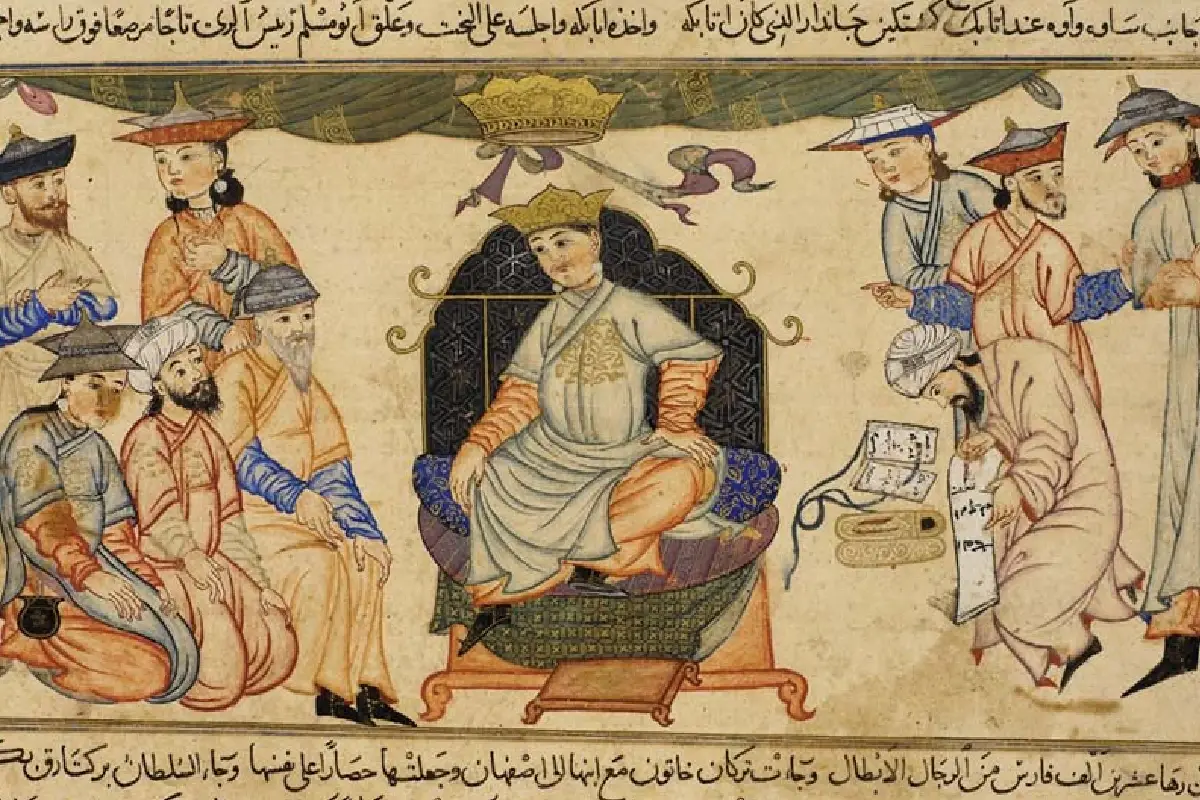 جانب ساوه وآوه عند اتابك كمستكين جاندار الذي كان اتابكه واخذه اتابكه واجلسه على التخت وعلق ابو مسلم رئيس الري تاجا مرصعا فوق راسه
عشرين الف فارس من الرجال الابطال وجاءت تركان خاتون مع ابنها الى اصفهان وجعلتها حصارا على نفسها وجاء السلطان بركيارق